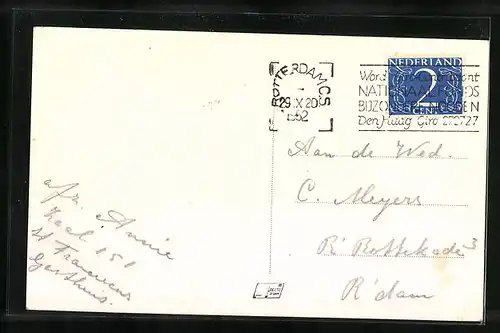 ROTTERDAM CS
29.X 20
1952
Word
NATIONAAL FONDS
BIJZONDERE NODEN
Den Haag Giro 270727
NEDERLAND
2
CENT
Aan de Wed.
C. Meyers
R' Rottekade 3
R'dam
afz. Annie
Zaal 151
St Franciscus
Gasthuis.